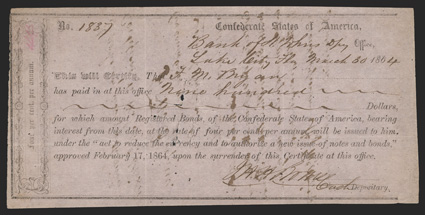 No. 1837 Confederate States of America.
Bank of St Johns Dpy Office,
Lake City, Fla March 30 1864
This will Certify, That F. M.
has paid in at this office Nine hundred
Dollars,
for which amount Registered Bonds, of the Confederate States of America, bearing
interest from this date, at the rate of four per cent per annum will be issued to him,
under the "act to reduce the currency and to authorize a new issue of notes and bonds,"
approved February 17, 1864, upon the surrender of this Certificate at this office.
Cash Depositary.
Four per cent. per annum.